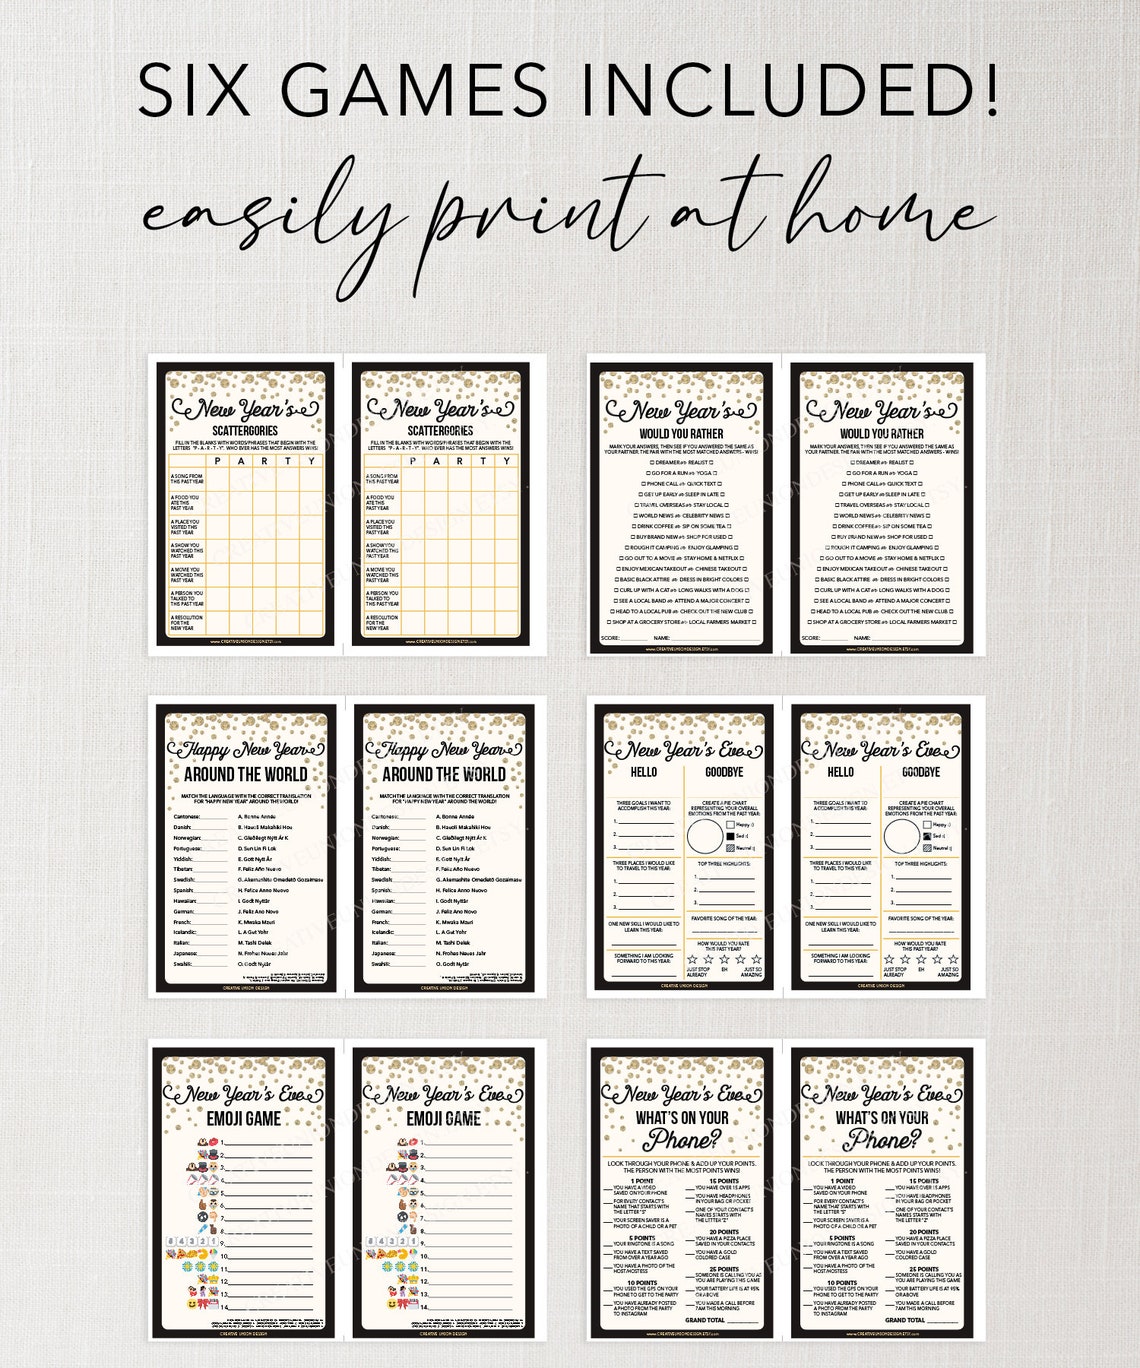 SIX GAMES INCLUDED!
easily print at home
New Year's
SCATTERGORIES
FILL IN THE BLANKS WITH WORDS/PHRASES THAT BEGIN WITH THE
LETTERS "P - A - R - T - Y". WHO EVER HAS THE MOST ANSWERS WINS!
P A R T Y
A SONG FROM
THIS PAST YEAR
A FOOD YOU
ATE THIS
PAST YEAR
A PLACE YOU
VISITED THIS
PAST YEAR
A SHOW YOU
WATCHED THIS
PAST YEAR
A MOVIE YOU
WATCHED THIS
PAST YEAR
A PERSON YOU
TALKED TO
THIS PAST YEAR
A RESOLUTION
FOR THE
NEW YEAR
www.CREATIVEUNIONDESIGN.ETSY.com
New Year's
SCATTERGORIES
FILL IN THE BLANKS WITH WORDS/PHRASES THAT BEGIN WITH THE
LETTERS "P - A - R - T - Y". WHO EVER HAS THE MOST ANSWERS WINS!
P A R T Y
A SONG FROM
THIS PAST YEAR
A FOOD YOU
ATE THIS
PAST YEAR
A PLACE YOU
VISITED THIS
PAST YEAR
A SHOW YOU
WATCHED THIS
PAST YEAR
A MOVIE YOU
WATCHED THIS
PAST YEAR
A PERSON YOU
TALKED TO
THIS PAST YEAR
A RESOLUTION
FOR THE
NEW YEAR
www.CREATIVEUNIONDESIGN.ETSY.com
New Year's
WOULD YOU RATHER
MARK YOUR ANSWERS, THEN SEE IF YOU ANSWERED THE SAME AS
YOUR PARTNER. THE PAIR WITH THE MOST MATCHED ANSWERS - WINS!
DREAMER or REALIST
GO FOR A RUN or YOGA
PHONE CALL or QUICK TEXT
GET UP EARLY or SLEEP IN LATE
TRAVEL OVERSEAS or STAY LOCAL
WORLD NEWS or CELEBRITY NEWS
DRINK COFFEE or SIP ON SOME TEA
BUY BRAND NEW or SHOP FOR USED
ROUGH IT CAMPING or ENJOY GLAMPING
GO OUT TO A MOVIE or STAY HOME & NETFLIX
ENJOY MEXICAN TAKEOUT or CHINESE TAKEOUT
BASIC BLACK ATTIRE or DRESS IN BRIGHT COLORS
CURL UP WITH A CAT or LONG WALKS WITH A DOG
SEE A LOCAL BAND or ATTEND A MAJOR CONCERT
HEAD TO A LOCAL PUB or CHECK OUT THE NEW CLUB
SHOP AT A GROCERY STORE or LOCAL FARMERS MARKET
SCORE: NAME:
www.CREATIVEUNIONDESIGN.ETSY.com
New Year's
WOULD YOU RATHER
MARK YOUR ANSWERS, THEN SEE IF YOU ANSWERED THE SAME AS
YOUR PARTNER. THE PAIR WITH THE MOST MATCHED ANSWERS - WINS!
DREAMER or REALIST
GO FOR A RUN or YOGA
PHONE CALL or QUICK TEXT
GET UP EARLY or SLEEP IN LATE
TRAVEL OVERSEAS or STAY LOCAL
WORLD NEWS or CELEBRITY NEWS
DRINK COFFEE or SIP ON SOME TEA
BUY BRAND NEW or SHOP FOR USED
ROUGH IT CAMPING or ENJOY GLAMPING
GO OUT TO A MOVIE or STAY HOME & NETFLIX
ENJOY MEXICAN TAKEOUT or CHINESE TAKEOUT
BASIC BLACK ATTIRE or DRESS IN BRIGHT COLORS
CURL UP WITH A CAT or LONG WALKS WITH A DOG
SEE A LOCAL BAND or ATTEND A MAJOR CONCERT
HEAD TO A LOCAL PUB or CHECK OUT THE NEW CLUB
SHOP AT A GROCERY STORE or LOCAL FARMERS MARKET
SCORE: NAME:
www.CREATIVEUNIONDESIGN.ETSY.com
Happy New Year
AROUND THE WORLD
MATCH THE LANGUAGE WITH THE CORRECT TRANSLATION
FOR "HAPPY NEW YEAR" AROUND THE WORLD!
Cantonese: A. Bonne Année
Danish: B. Hauoli Makahiki Hou
Norwegian: C. Gleðilegt Nýtt Ár K
Portuguese: D. Sun Lin Fi Lok
Yiddish: E. Gott Nytt År
Tibetan: F. Feliz Año Nuevo
Swedish: G. Akemashite Omedetō Gozaimasu
Spanish: H. Felice Anno Nuovo
Hawaiian: I. Godt Nytår
German: J. Feliz Ano Novo
French: K. Mwaka Mzuri
Icelandic: L. A Gut Yohr
Italian: M. Tashi Delek
Japanese: N. Frohes Neues Jahr
Swahili: O. Godt Nytår
CREATIVE UNION DESIGN
Happy New Year
AROUND THE WORLD
MATCH THE LANGUAGE WITH THE CORRECT TRANSLATION
FOR "HAPPY NEW YEAR" AROUND THE WORLD!
Cantonese: A. Bonne Année
Danish: B. Hauoli Makahiki Hou
Norwegian: C. Gleðilegt Nýtt Ár K
Portuguese: D. Sun Lin Fi Lok
Yiddish: E. Gott Nytt År
Tibetan: F. Feliz Año Nuevo
Swedish: G. Akemashite Omedetō Gozaimasu
Spanish: H. Felice Anno Nuovo
Hawaiian: I. Godt Nytår
German: J. Feliz Ano Novo
French: K. Mwaka Mzuri
Icelandic: L. A Gut Yohr
Italian: M. Tashi Delek
Japanese: N. Frohes Neues Jahr
Swahili: O. Godt Nytår
CREATIVE UNION DESIGN
New Year's Eve
HELLO
THREE GOALS I WANT TO
ACCOMPLISH THIS YEAR:
1.
2.
3.
THREE PLACES I WOULD LIKE
TO TRAVEL TO THIS YEAR:
1.
2.
3.
ONE NEW SKILL I WOULD LIKE TO
LEARN THIS YEAR:
SOMETHING I AM LOOKING
FORWARD TO THIS YEAR:
GOODBYE
CREATE A PIE CHART
REPRESENTING YOUR OVERALL
EMOTIONS FROM THE PAST YEAR:
Happy :)
Sad :(
Neutral :|
TOP THREE HIGHLIGHTS:
1.
2.
3.
FAVORITE SONG OF THE YEAR:
HOW WOULD YOU RATE
THIS PAST YEAR?
JUST STOP
ALREADY
EH
JUST SO
AMAZING
CREATIVE UNION DESIGN
New Year's Eve
HELLO
THREE GOALS I WANT TO
ACCOMPLISH THIS YEAR:
1.
2.
3.
THREE PLACES I WOULD LIKE
TO TRAVEL TO THIS YEAR:
1.
2.
3.
ONE NEW SKILL I WOULD LIKE TO
LEARN THIS YEAR:
SOMETHING I AM LOOKING
FORWARD TO THIS YEAR:
GOODBYE
CREATE A PIE CHART
REPRESENTING YOUR OVERALL
EMOTIONS FROM THE PAST YEAR:
Happy :)
Sad :(
Neutral :|
TOP THREE HIGHLIGHTS:
1.
2.
3.
FAVORITE SONG OF THE YEAR:
HOW WOULD YOU RATE
THIS PAST YEAR?
JUST STOP
ALREADY
EH
JUST SO
AMAZING
New Year's Eve
EMOJI GAME
1.
2.
3.
4.
5.
6.
7.
8.
5 4 3 2 1 9.
10.
11.
12.
13.
14.
CREATIVE UNION DESIGN
New Year's Eve
EMOJI GAME
1.
2.
3.
4.
5.
6.
7.
8.
5 4 3 2 1 9.
10.
11.
12.
13.
14.
CREATIVE UNION DESIGN
New Year's Eve
WHAT'S ON YOUR
Phone?
LOOK THROUGH YOUR PHONE & ADD UP YOUR POINTS.
THE PERSON WITH THE MOST POINTS WINS!
1 POINT
YOU HAVE A VIDEO
SAVED ON YOUR PHONE
FOR EVERY CONTACT'S
NAME THAT STARTS WITH
THE LETTER "S"
YOUR SCREEN SAVER IS A
PHOTO OF A CHILD OR A PET
5 POINTS
YOUR RINGTONE IS A SONG
YOU HAVE A TEXT SAVED
FROM OVER A YEAR AGO
YOU HAVE A PHOTO OF THE
HOST/HOSTESS
10 POINTS
YOU USED THE GPS ON YOUR
PHONE TO GET TO THE PARTY
YOU HAVE ALREADY POSTED
A PHOTO FROM THE PARTY
TO INSTAGRAM
15 POINTS
YOU HAVE OVER 15 APPS
YOU HAVE HEADPHONES
IN YOUR BAG OR POCKET
ONE OF YOUR CONTACT'S
NAMES STARTS WITH
THE LETTER "Z"
20 POINTS
YOU HAVE A PIZZA PLACE
SAVED IN YOUR CONTACTS
YOU HAVE A GOLD
COLORED CASE
25 POINTS
SOMEONE IS CALLING YOU AS
YOU ARE PLAYING THIS GAME
YOUR BATTERY LIFE IS AT 95%
OR ABOVE
YOU MADE A CALL BEFORE
7 AM THIS MORNING
GRAND TOTAL
www.CREATIVEUNIONDESIGN.ETSY.com
New Year's Eve
WHAT'S ON YOUR
Phone?
LOOK THROUGH YOUR PHONE & ADD UP YOUR POINTS.
THE PERSON WITH THE MOST POINTS WINS!
1 POINT
YOU HAVE A VIDEO
SAVED ON YOUR PHONE
FOR EVERY CONTACT'S
NAME THAT STARTS WITH
THE LETTER "S"
YOUR SCREEN SAVER IS A
PHOTO OF A CHILD OR A PET
5 POINTS
YOUR RINGTONE IS A SONG
YOU HAVE A TEXT SAVED
FROM OVER A YEAR AGO
YOU HAVE A PHOTO OF THE
HOST/HOSTESS
10 POINTS
YOU USED THE GPS ON YOUR
PHONE TO GET TO THE PARTY
YOU HAVE ALREADY POSTED
A PHOTO FROM THE PARTY
TO INSTAGRAM
15 POINTS
YOU HAVE OVER 15 APPS
YOU HAVE HEADPHONES
IN YOUR BAG OR POCKET
ONE OF YOUR CONTACT'S
NAMES STARTS WITH
THE LETTER "Z"
20 POINTS
YOU HAVE A PIZZA PLACE
SAVED IN YOUR CONTACTS
YOU HAVE A GOLD
COLORED CASE
25 POINTS
SOMEONE IS CALLING YOU AS
YOU ARE PLAYING THIS GAME
YOUR BATTERY LIFE IS AT 95%
OR ABOVE
YOU MADE A CALL BEFORE
7 AM THIS MORNING
GRAND TOTAL
www.CREATIVEUNIONDESIGN.ETSY.com